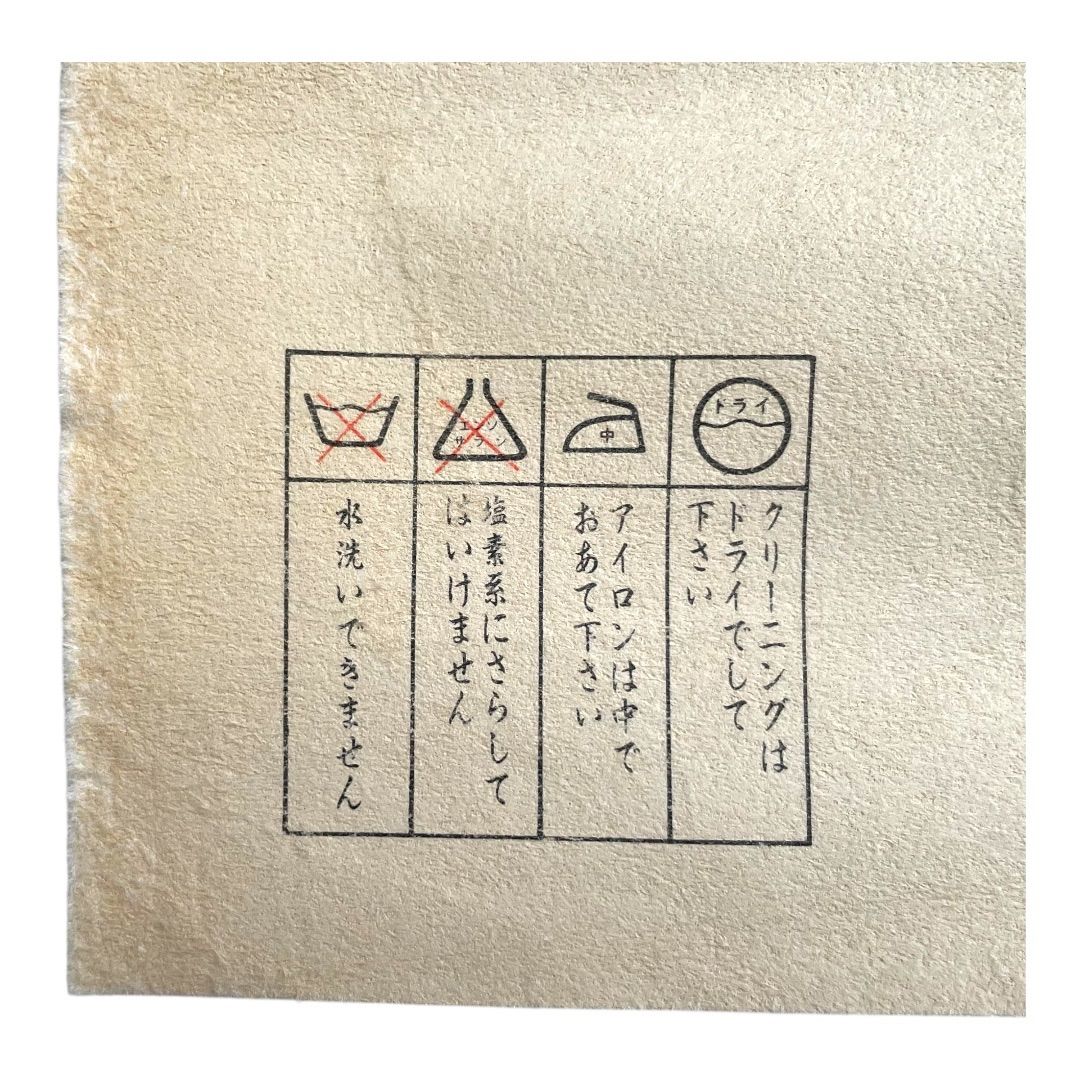 ドライ
クリーニングは
ドライでして
下さい
中
アイロンは中で
おあて下さい
エンソ
サラシ
塩素系にさらして
はいけません
水洗いできません